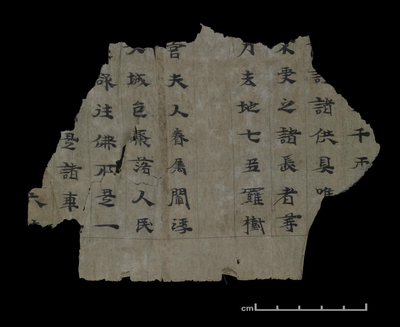 千
諸供具唯
受之諸長者等
去地七多羅樹
夫人眷屬閻浮
城邑聚落人民
往佛所是一
是諸車